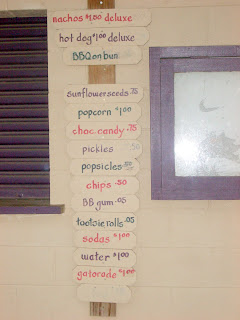 nachos $1.50 deluxe
hot dog $1.00 deluxe
BBQ on bun
sunflower seeds .75
popcorn $1.00
choc candy .75
pickles .50
popsicles
chips .50
BB gum .05
tootsie rolls .05
sodas $1.00
water $1.00
gatorade $1.00